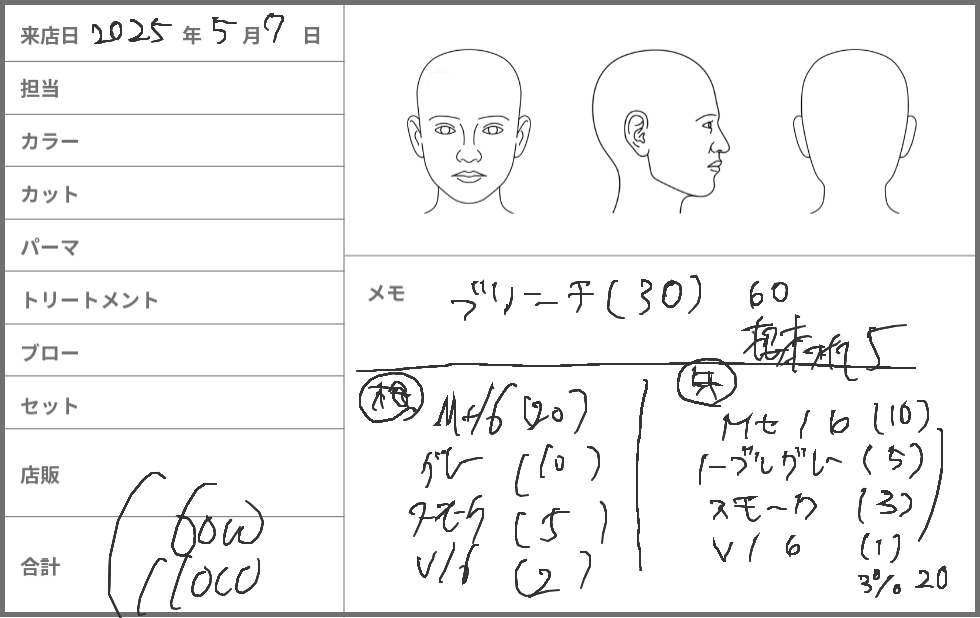 来店日 2025 年 5 月 7 日
担当
カラー
カット
パーマ
トリートメント
ブロー
セット
店販
合計
6000
11000
メモ ブリーチ(30) 60
根本 5
根
Mt/6 (20)
グレー (10)
スモーク (5)
V/6 (2)
Mt/6 (10)
ノーブルグレー (5)
スモーク (3)
V/6 (1)
3% 20